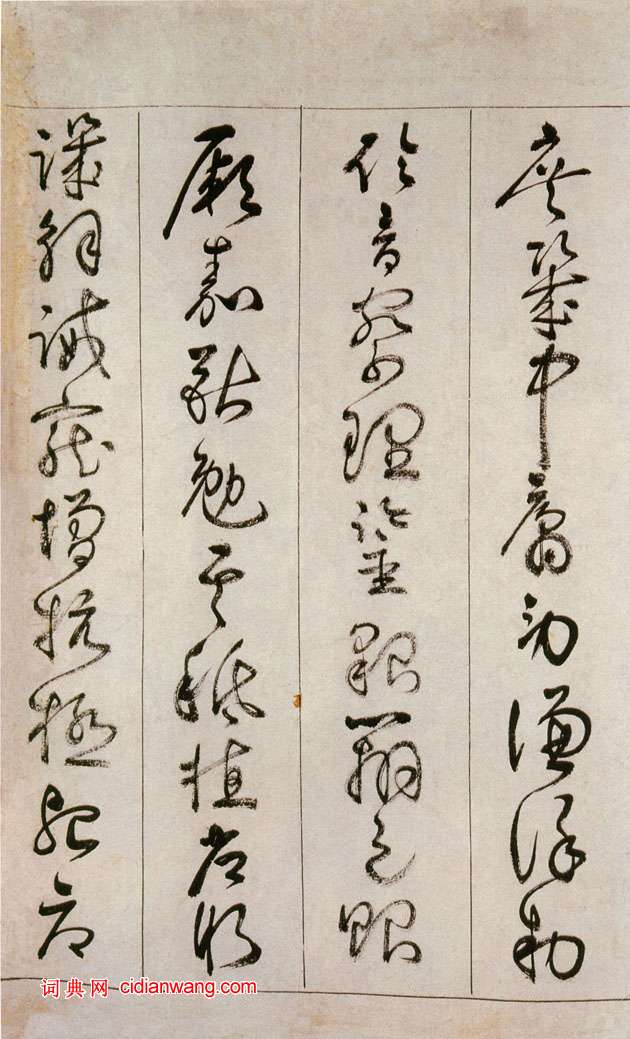 庶幾中庸勞謙謹敕
聆音察理鑑貌辨色貽
厥嘉猷勉其祗植省
譏誡寵增抗極殆辱
词典网 cidianwang.com